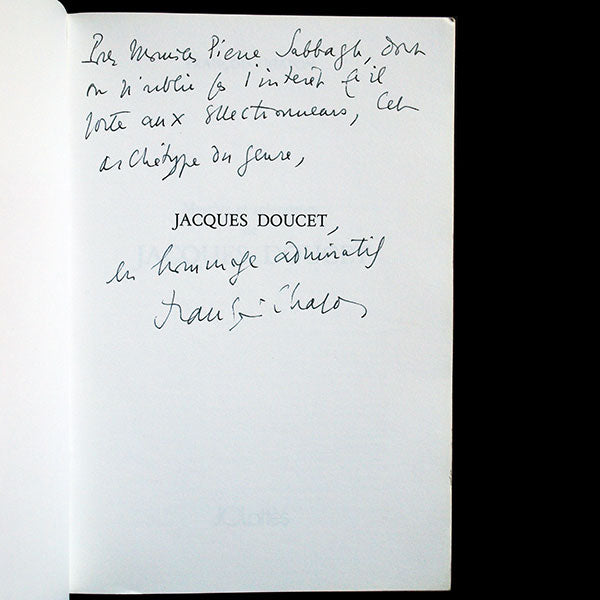 Pour Monsieur Pierre Sabbagh, dont
on n'oublie pas l'intérêt qu'il
porte aux collectionneurs, cet
archétype du genre,
JACQUES DOUCET,
en hommage admiratif
François Chapon
JCLattès